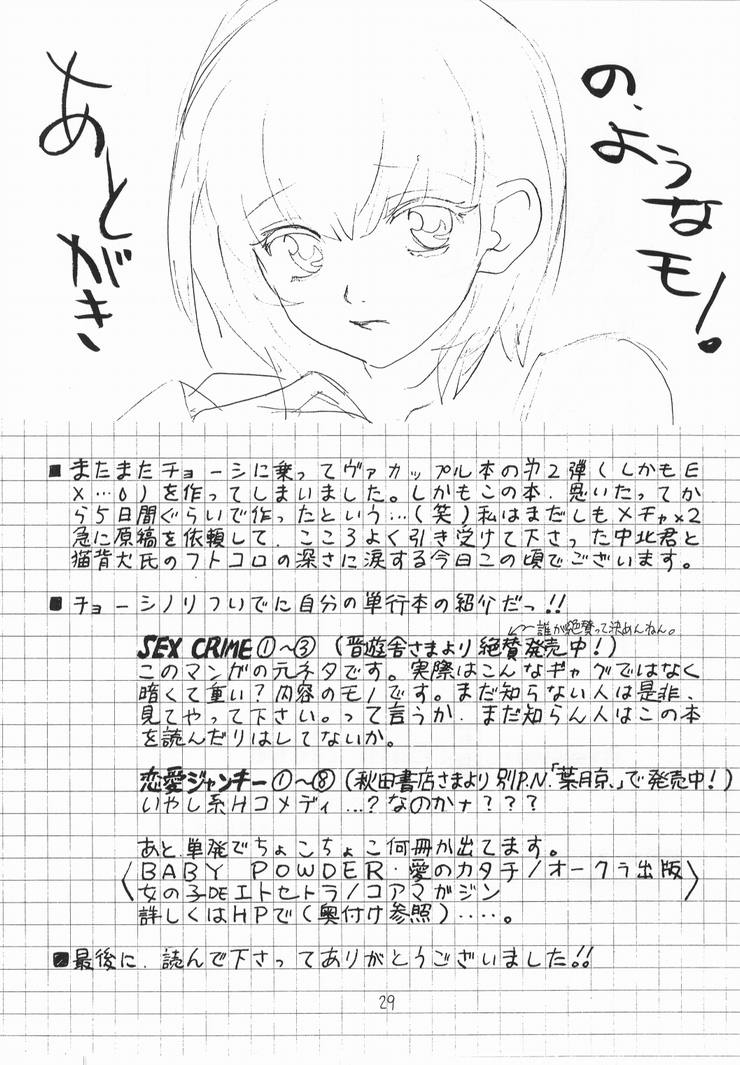 あとがき
の、ような
モノ。
■またまたチョーシに乗ってヴァカップル本の第2弾(しかもE
X…o)を作ってしまいました。しかもこの本、思いたってか
ら5日間ぐらいで作ったという…(笑)私はまだしもメチャx2
急に原稿を依頼して、こころよく引き受けて下さった中北君と
猫背犬氏のフトコロの深さに涙する今日この頃でございます。
■チョーシノリついでに自分の単行本の紹介だっ!!
←誰が絶賛って決めんねん。
SEX CRIME①〜③(晋遊舎さまより絶賛発売中!)
このマンガの元ネタです。実際はこんなギャグではなく
暗くて重い?内容のモノです。まだ知らない人は是非、
見てやって下さい。って言うか、まだ知らん人はこの本
を読んだりはしてないか。
恋愛ジャンキー①〜⑧(秋田書店さまより別P.N.「葉月京、」で発売中!)
いやし系Hコメディ…?なのかナ???
あと、単発でちょこちょこ何冊か出てます。
〈BABY POWDER・愛のカタチ/オークラ出版
女の子DEエトセトラ/コアマガジン〉
詳しくはHPで(奥付け参照)‥‥。
■最後に、読んで下さってありがとうございました!!
29